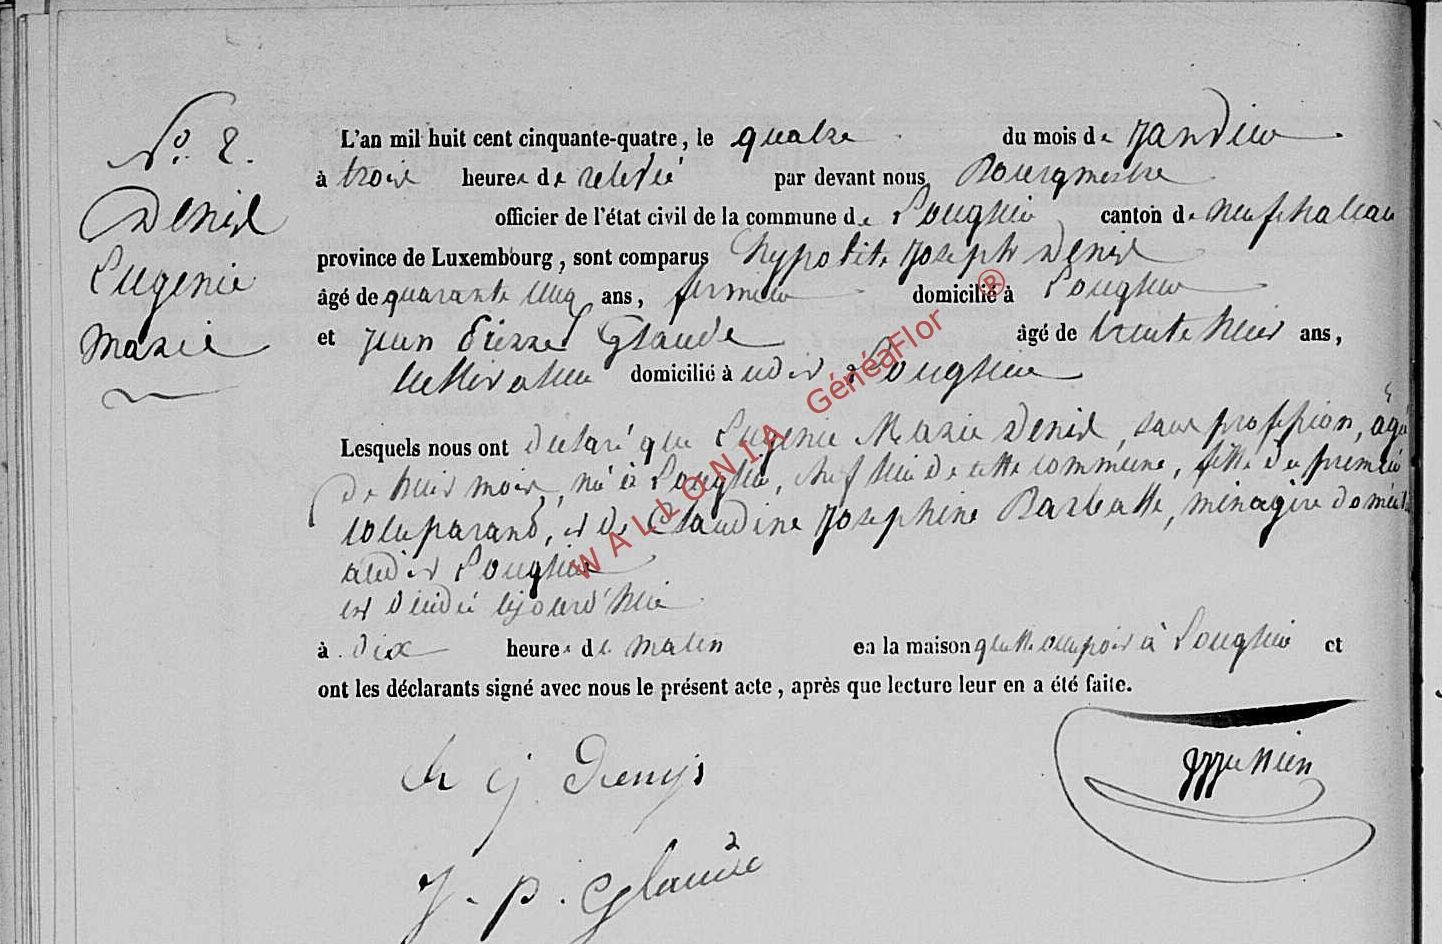 N°. 2.
Denis
Eugenie
Marie
L'an mil huit cent cinquante-quatre, le quatre du mois de Janvier
à trois heures de relevée par devant nous Bourgmestre
officier de l'état civil de la commune de Longlier canton de Neufchateau
province de Luxembourg, sont comparus hypolite Joseph Denis
âgé de quarante cinq ans, fermier domicilié à Longlier
et Jean Pierre Glaude âgé de trente huit ans,
cultivateur domicilié à audit à Longlier
Lesquels nous ont déclaré que Eugenie Marie Denis, sans profession, âgé
de huit mois, né à Longlier, chef lieu de cette commune, fille du premier
comparant, et de Claudine Josephine Barbette, ménagère domicil
audit Longlier
est décédé aujourd'hui
à dix heures du matin en la maison qu'elle occupoit à Longlier et
ont les déclarants signé avec nous le présent acte, après que lecture leur en a été faite.
h j Denys
J. P. Glaude
WALLONIA GénéaFlor ®